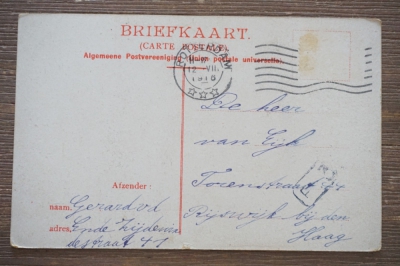 BRIEFKAART.
(CARTE POSTALE)
Algemeene Postvereeniging (Union postale universelle).
ROTTERDAM
12 VII.
De heer
van Eijk
Torenstraat
Rijswijk bij den
Haag
Afzender:
naam, Gerard
adres, Ende
destraat 41